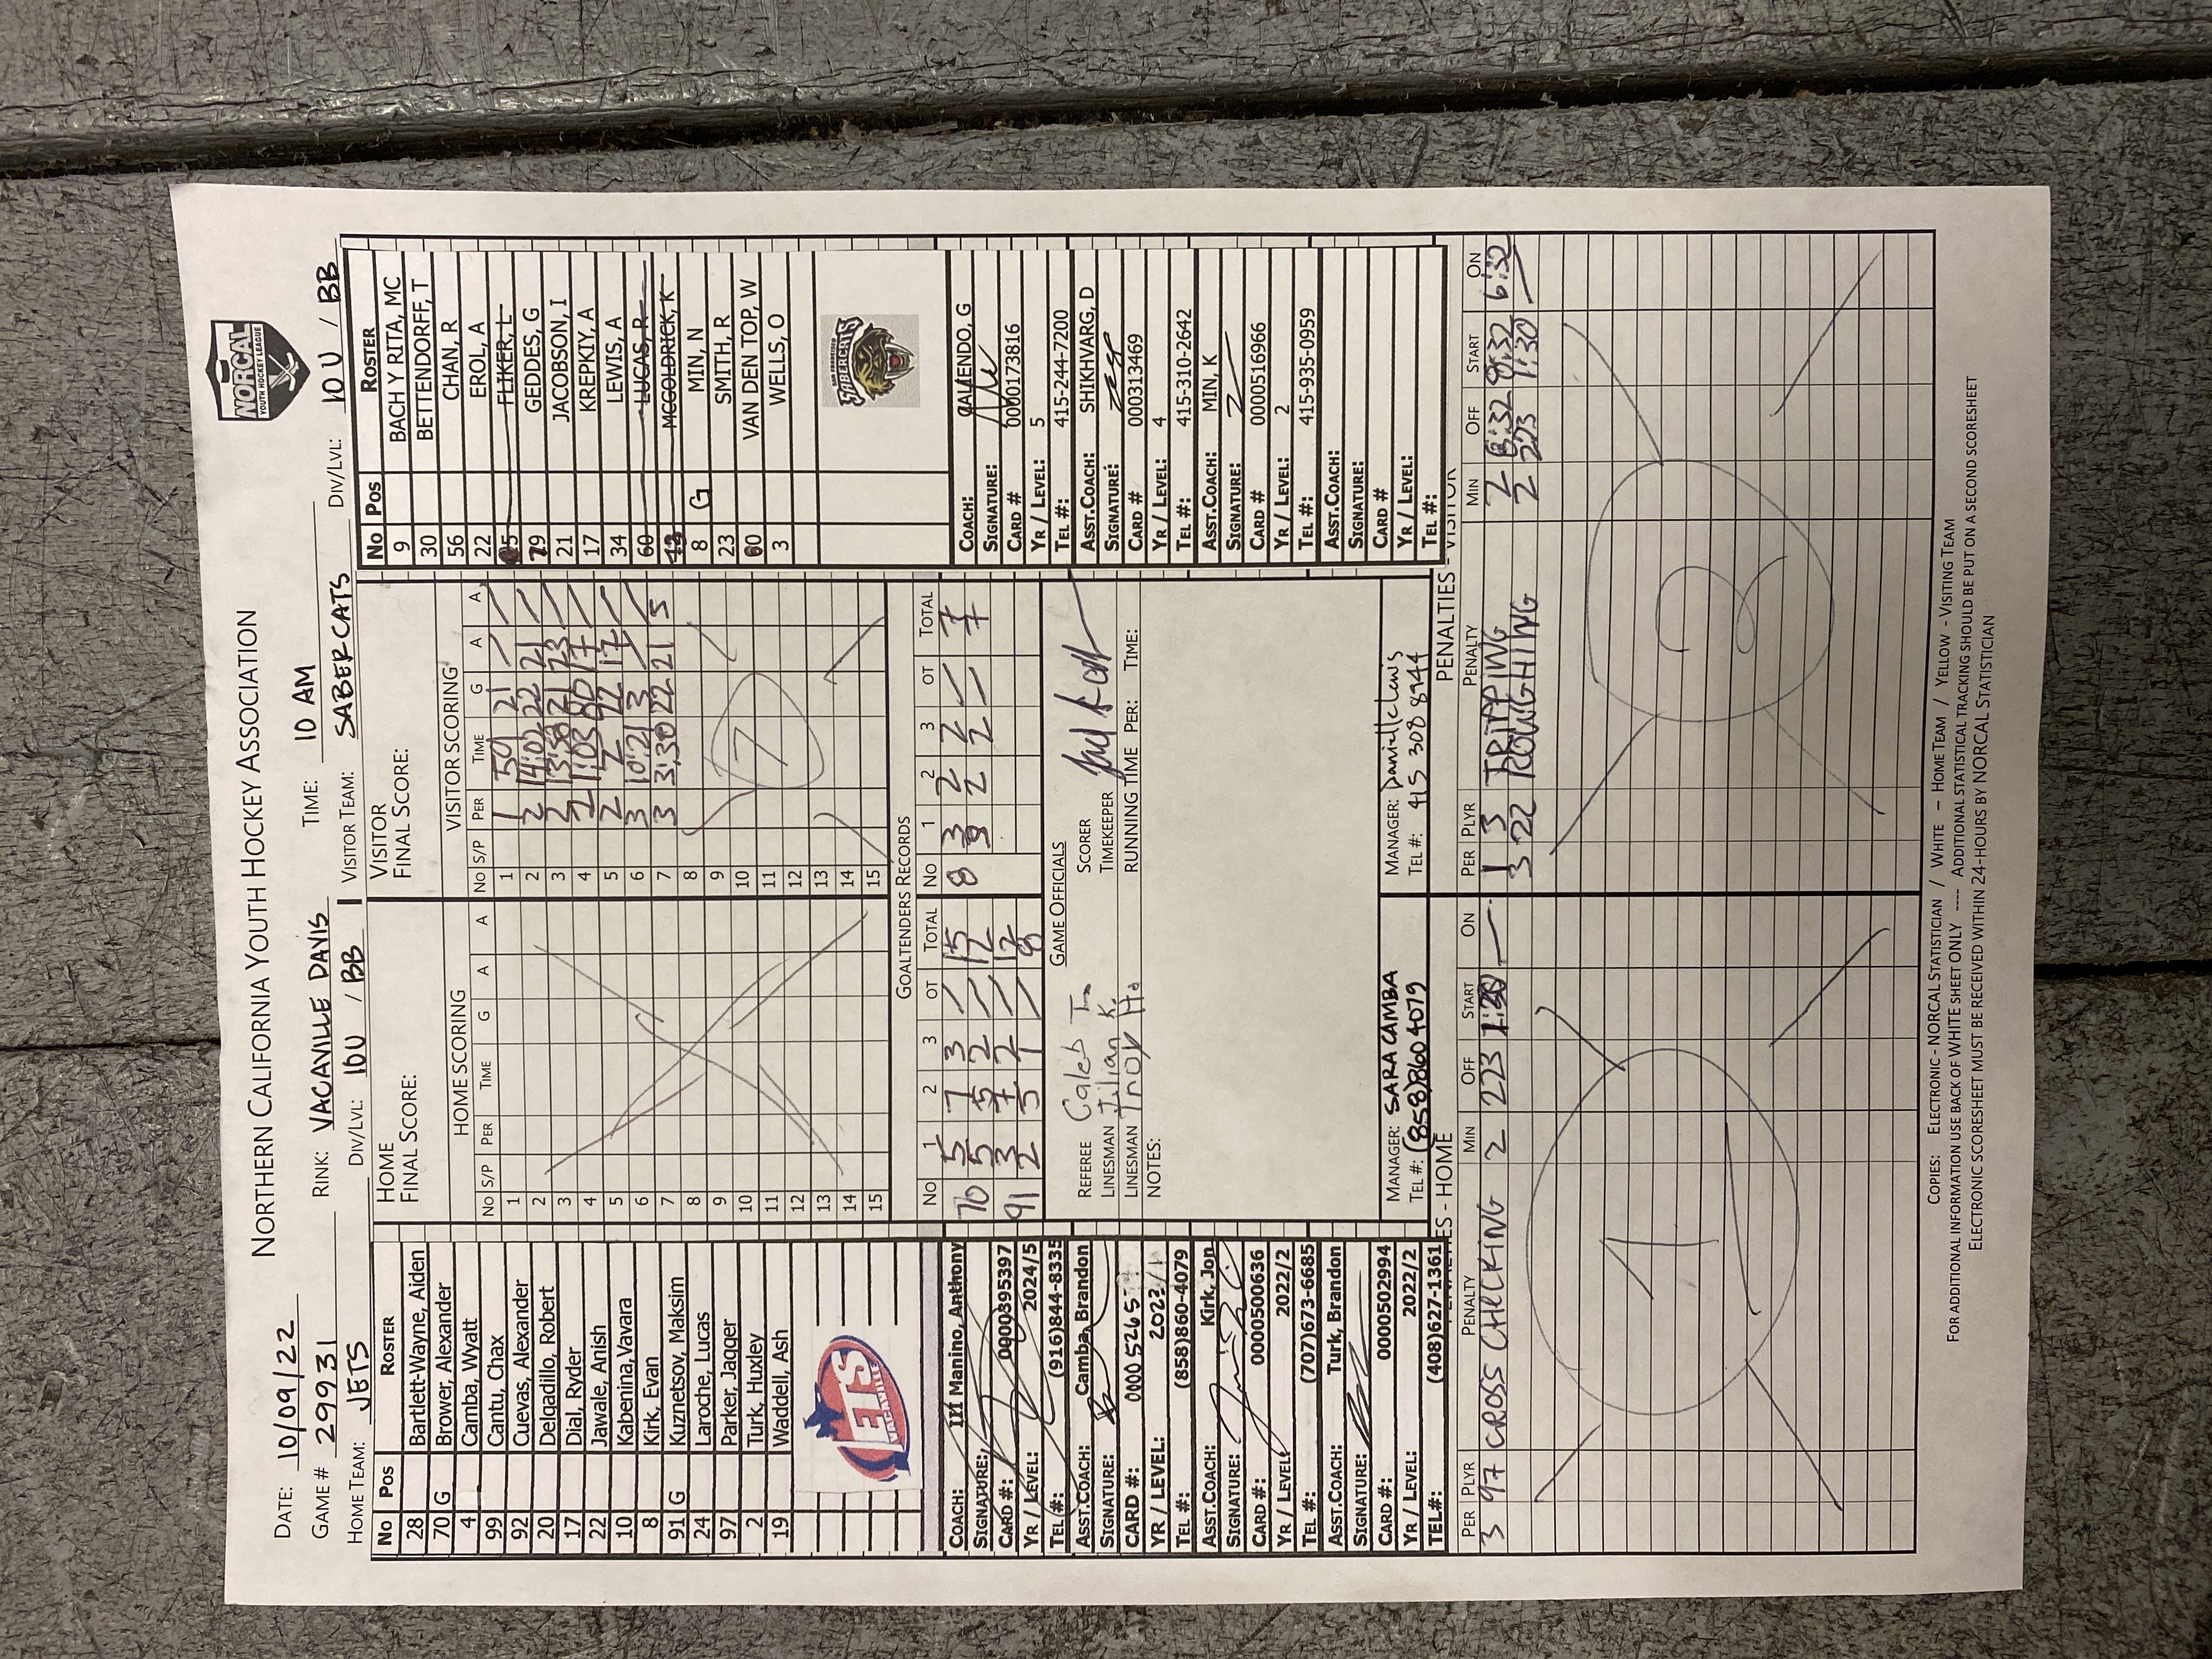 NORTHERN CALIFORNIA YOUTH HOCKEY ASSOCIATION
NORCAL
YOUTH HOCKEY LEAGUE
DATE: 10/09/22
GAME # 29931 RINK: VACAVILLE DAVIS TIME: 10 AM
HOME TEAM: JETS DIV/LVL: 10U / BB VISITOR TEAM: SABERCATS DIV/LVL: 10U / BB
No Pos ROSTER
28 Bartlett-Wayne, Aiden
70 G Brower, Alexander
4 Camba, Wyatt
99 Cantu, Chax
92 Cuevas, Alexander
20 Delgadillo, Robert
17 Dial, Ryder
22 Jawale, Anish
10 Kabenina, Vavara
8 Kirk, Evan
91 G Kuznetsov, Maksim
24 Laroche, Lucas
97 Parker, Jagger
2 Turk, Huxley
19 Waddell, Ash
JETS
VACAVILLE
COACH: III Manino, Anthony
SIGNATURE:
CARD #: 0000395397
YR / LEVEL: 2024/5
TEL #: (916)844-8335
ASST.COACH: Camba, Brandon
SIGNATURE:
CARD #: 00005265
YR / LEVEL:
TEL #: (858)860-4079
ASST.COACH: Kirk, Jon
SIGNATURE:
CARD #: 0000500636
YR / LEVEL: 2022/2
TEL #: (707)673-6685
ASST.COACH: Turk, Brandon
SIGNATURE:
CARD #: 0000502994
YR / LEVEL: 2022/2
TEL#: (408)627-1361
HOME
FINAL SCORE:
HOME SCORING
No S/P PER TIME G A A
1
2
3
4
5
6
7
8
9
10
11
12
13
14
15
VISITOR
FINAL SCORE:
VISITOR SCORING
No S/P PER TIME G A A
1 1 59 21
2 2 14:02 22 21
3 2 13:38 21 23
4 2 1:03 60 17
5 2 2 22 17
6 3 10:21 3
7 3 3:30 22 21 5
8
9
10
11
12
13
14
15
7
GOALTENDERS RECORDS
No 1 2 3 OT TOTAL No 1 2 3 OT TOTAL
70 5 7 3 15 8 3 2 2 7
5 5 2 12 3 2 2 7
91 3 7 2 12
2 5 1 8
GAME OFFICIALS
REFEREE Caleb T. SCORER
LINESMAN Jilian K. TIMEKEEPER
LINESMAN Troy Ho RUNNING TIME PER: TIME:
NOTES:
MANAGER: SARA CAMBA
TEL #: (858)860 4079
MANAGER: Danielle Lewis
TEL #: 415 308 8944
No Pos ROSTER
9 BACH Y RITA, MC
30 BETTENDORFF, T
56 CHAN, R
22 EROL, A
FLIKER, L
79 GEDDES, G
21 JACOBSON, I
17 KREPKIY, A
34 LEWIS, A
60 LUCAS, R
MCGOLDRICK, K
8 G MIN, N
23 SMITH, R
60 VAN DEN TOP, W
3 WELLS, O
SAN FRANCISCO
SABERCATS
COACH: GALENDO, G
SIGNATURE:
CARD # 0000173816
YR / LEVEL: 5
TEL #: 415-244-7200
ASST.COACH: SHIKHVARG, D
SIGNATURE:
CARD # 000313469
YR / LEVEL: 4
TEL #: 415-310-2642
ASST.COACH: MIN, K
SIGNATURE:
CARD # 0000516966
YR / LEVEL: 2
TEL #: 415-935-0959
ASST.COACH:
SIGNATURE:
CARD #
YR / LEVEL:
TEL #:
PENALTIES - HOME
PER PLYR PENALTY MIN OFF START ON
3 97 CROSS CHECKING 2 223 1:30
1
PENALTIES - VISITOR
PER PLYR PENALTY MIN OFF START ON
1 3 TRIPPING 2 8:32 8:32 6:32
3 22 ROUGHING 2 223 1:30
2
COPIES: ELECTRONIC - NORCAL STATISTICIAN / WHITE – HOME TEAM / YELLOW - VISITING TEAM
FOR ADDITIONAL INFORMATION USE BACK OF WHITE SHEET ONLY ---- ADDITIONAL STATISTICAL TRACKING SHOULD BE PUT ON A SECOND SCORESHEET
ELECTRONIC SCORESHEET MUST BE RECEIVED WITHIN 24-HOURS BY NORCAL STATISTICIAN